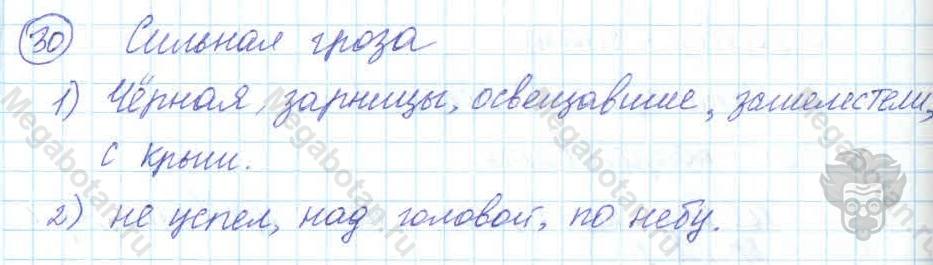 30 Сильная гроза
1) Чёрная, зарницы, освещавшие, зашелестели,
с крыш.
2) не успел, над головой, по небу.
Megabotan.ru
Megabotan.ru
Megabotan.ru
Megabotan.ru